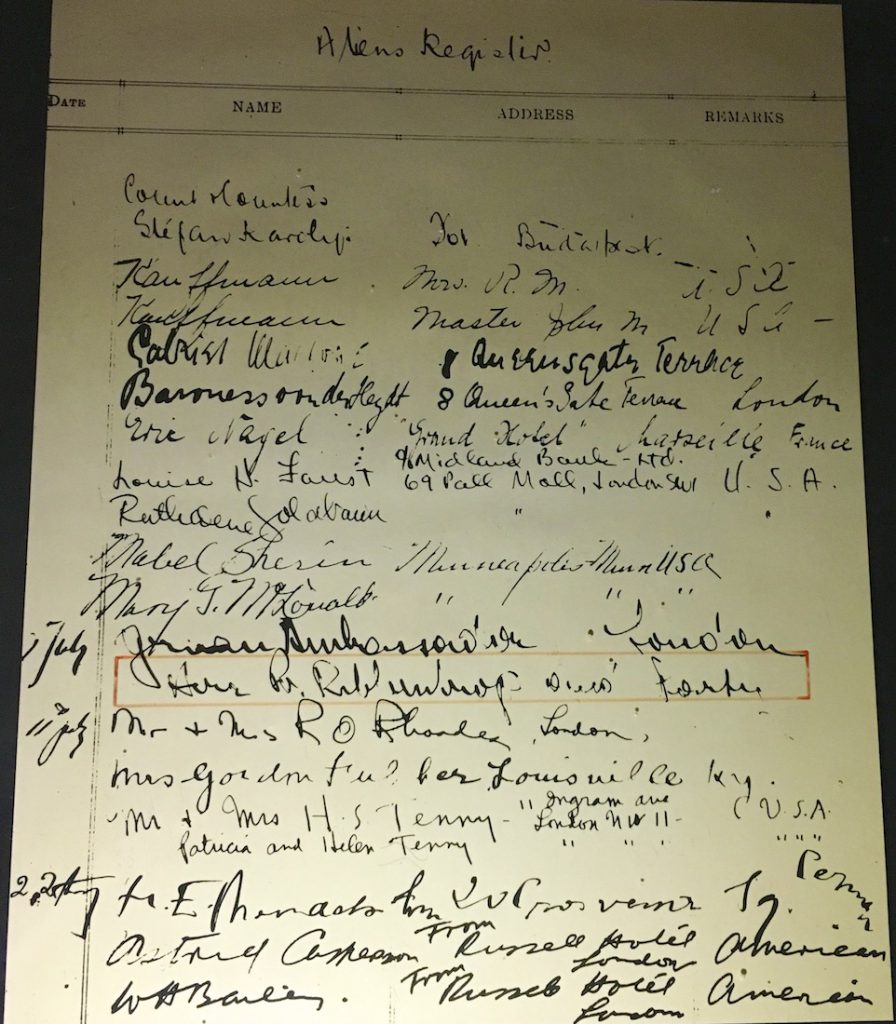 Aliens Register.
DATE NAME ADDRESS REMARKS
Count & Countess
Stefan Karolyi. Budapest.
Kauffmann Mrs. R. M. U S A
Kauffmann Master John M U S A -
Gabriel 8 Queensgate Terrace
Baroness von der Heydt 8 Queen's Gate Terrace London
Eric Nagel "Grand Hotel" Marseille France
c/o Midland Bank - Ltd.
Louise H. Faust 69 Pall Mall, London SW1 U. S. A.
Goldbaum "
Mabel Minneapolis Minn USA
Mary G. McDonald " " "
July German Ambassador London
Herr v. Ribbentrop
11th July Mr & Mrs R O Rhoades, London,
Mrs Gordon Louisville Ky.
Mr & Mrs H. S Tenny - " Ingram ave London NW 11 - (U.S.A.
Patricia and Helen Tenny " " " " " "
E. Grosvenor Sq.
Astrid From Russell Hotel London American
W H From Russell Hotel London American